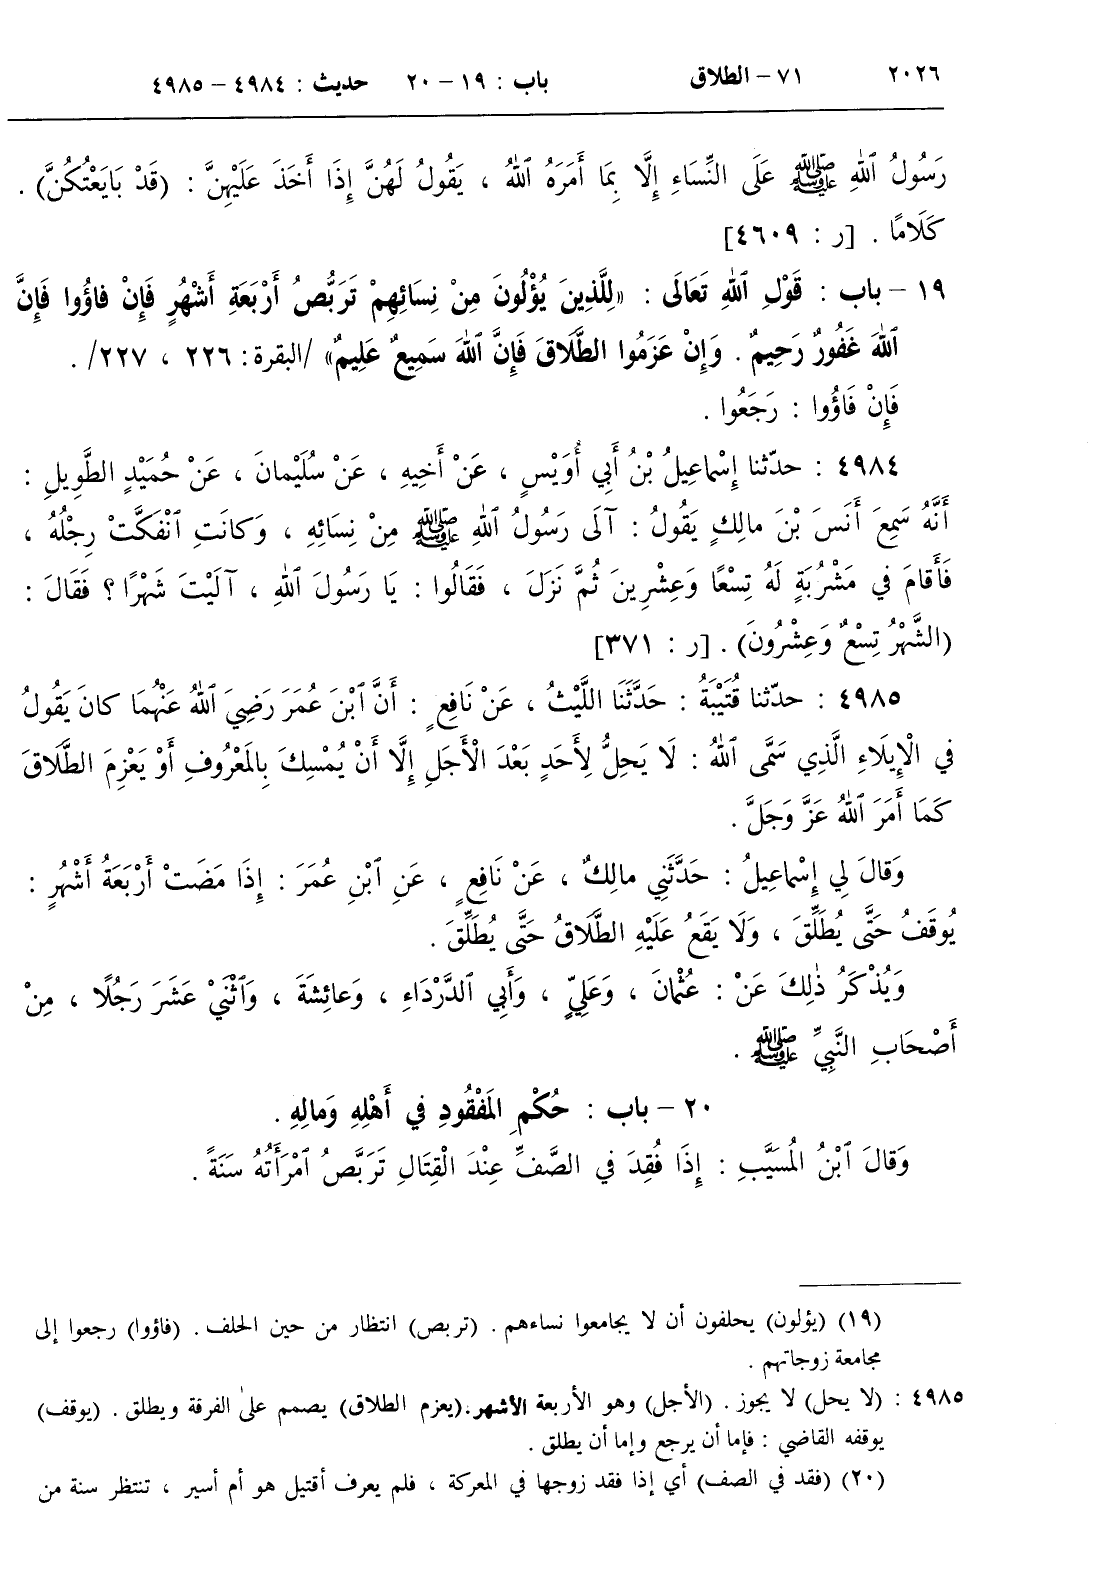 ٢٠٢٦ ٧١ – الطلاق باب : ١٩ – ٢٠ حديث : ٤٩٨٤ – ٤٩٨٥
رَسُولُ ٱللهِ ﷺ عَلَى النِّسَاءِ إِلَّا بِمَا أَمَرَهُ ٱللهُ ، يَقُولُ لَهُنَّ إِذَا أَخَذَ عَلَيْهِنَّ : (قَدْ بَايَعْتُكُنَّ) .
كَلَامًا . [ر : ٤٦٠٩]
١٩ – باب : قَوْلِ ٱللهِ تَعَالَى : «لِلَّذِينَ يُؤْلُونَ مِنْ نِسَائِهِمْ تَرَبُّصُ أَرْبَعَةِ أَشْهُرٍ فَإِنْ فَاؤُوا فَإِنَّ
ٱللهَ غَفُورٌ رَحِيمٌ . وَإِنْ عَزَمُوا الطَّلَاقَ فَإِنَّ ٱللهَ سَمِيعٌ عَلِيمٌ» /البقرة: ٢٢٦ ، ٢٢٧/ .
فَإِنْ فَاؤُوا : رَجَعُوا .
٤٩٨٤ : حدّثنا إِسْماعِيلُ بْنُ أَبِي أُوَيْسٍ ، عَنْ أَخِيهِ ، عَنْ سُلَيْمانَ ، عَنْ حُمَيْدٍ الطَّوِيلِ :
أَنَّهُ سَمِعَ أَنَسَ بْنَ مالِكٍ يَقُولُ : آلَى رَسُولُ ٱللهِ ﷺ مِنْ نِسَائِهِ ، وَكانَتِ ٱنْفَكَّتْ رِجْلُهُ ،
فَأَقامَ فِي مَشْرُبَةٍ لَهُ تِسْعًا وَعِشْرِينَ ثُمَّ نَزَلَ ، فَقَالُوا : يَا رَسُولَ ٱللهِ ، آلَيْتَ شَهْرًا ؟ فَقَالَ :
(الشَّهْرُ تِسْعٌ وَعِشْرُونَ) . [ر : ٣٧١]
٤٩٨٥ : حدّثنا قُتَيْبَةُ : حَدَّثَنَا اللَّيْثُ ، عَنْ نَافِعٍ : أَنَّ ٱبْنَ عُمَرَ رَضِيَ ٱللهُ عَنْهُمَا كانَ يَقُولُ
فِي الْإِيلَاءِ الَّذِي سَمَّى ٱللهُ : لَا يَحِلُّ لِأَحَدٍ بَعْدَ الْأَجَلِ إِلَّا أَنْ يُمْسِكَ بِالمَعْرُوفِ أَوْ يَعْزِمَ الطَّلَاقَ
كَمَا أَمَرَ ٱللهُ عَزَّ وَجَلَّ .
وَقالَ لِي إِسْماعِيلُ : حَدَّثَنِي مالِكٌ ، عَنْ نَافِعٍ ، عَنِ ٱبْنِ عُمَرَ : إِذَا مَضَتْ أَرْبَعَةُ أَشْهُرٍ :
يُوقَفُ حَتَّى يُطَلِّقَ ، وَلَا يَقَعُ عَلَيْهِ الطَّلَاقُ حَتَّى يُطَلِّقَ .
وَيُذْكَرُ ذٰلِكَ عَنْ : عُثْمانَ ، وَعَلِيٍّ ، وَأَبِي ٱلدَّرْدَاءِ ، وَعائِشَةَ ، وَٱثْنَيْ عَشَرَ رَجُلًا ، مِنْ
أَصْحَابِ النَّبِيِّ ﷺ .
٢٠ – باب : حُكْمِ المَفْقُودِ فِي أَهْلِهِ وَمالِهِ .
وَقالَ ٱبْنُ المُسَيَّبِ : إِذَا فُقِدَ فِي الصَّفِّ عِنْدَ الْقِتَالِ تَرَبَّصُ ٱمْرَأَتُهُ سَنَةً .
(١٩) (يؤلون) يحلفون أن لا يجامعوا نساءهم . (تربص) انتظار من حين الحلف . (فاؤوا) رجعوا إلى
مجامعة زوجاتهم .
٤٩٨٥ : (لا يحل) لا يجوز . (الأجل) وهو الأربعة الأشهر.(يعزم الطلاق) يصمم على الفرقة ويطلق . (يوقف)
يوقفه القاضي : فإما أن يرجع وإما أن يطلق .
(٢٠) (فقد في الصف) أي إذا فقد زوجها في المعركة ، فلم يعرف أقتيل هو أم أسير ، تنتظر سنة من